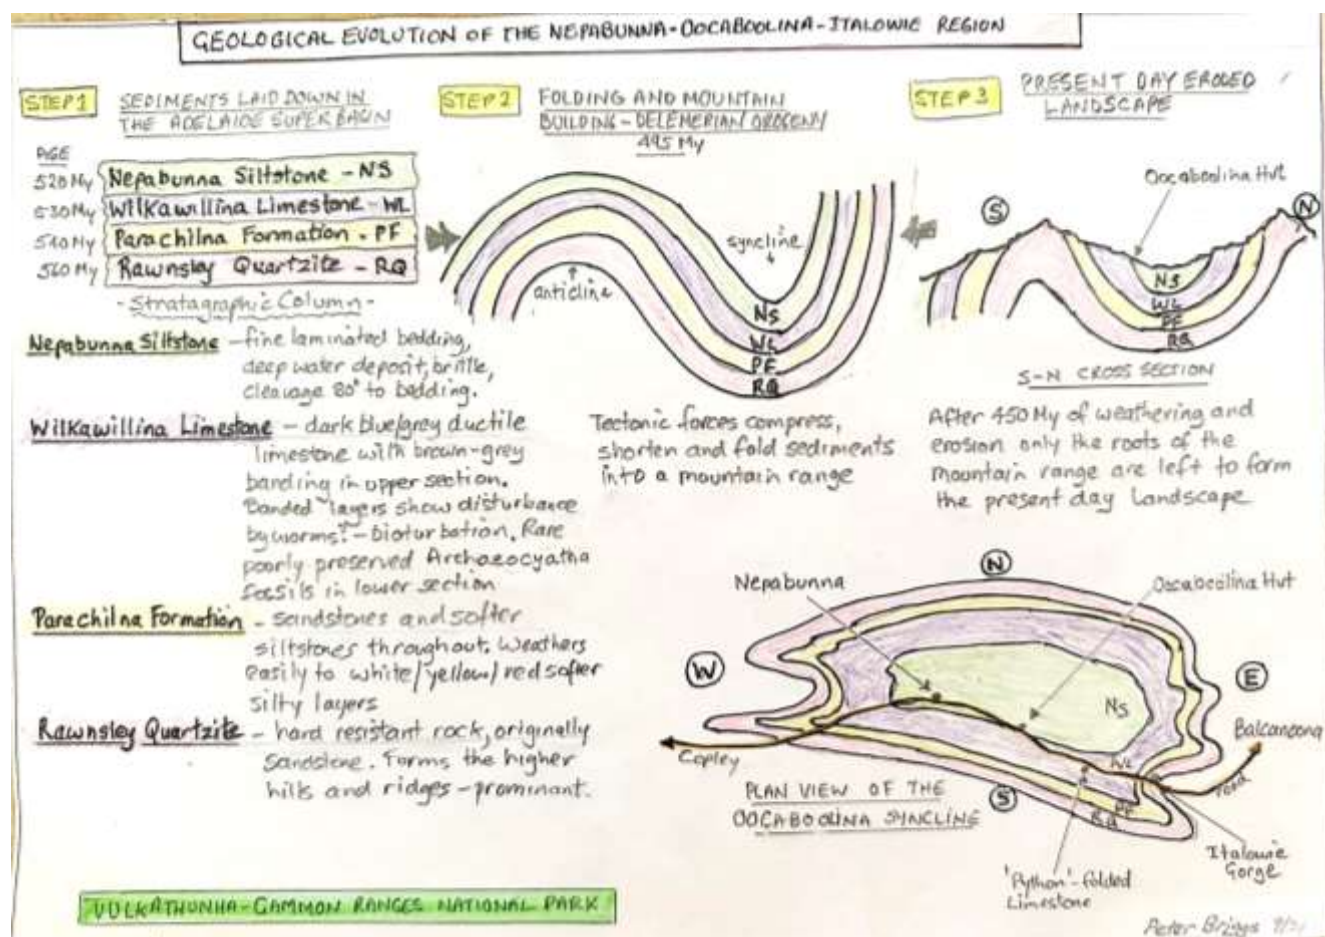 GEOLOGICAL EVOLUTION OF THE NEPABUNNA-OOCABOOLINA-ITALOWIE REGION
STEP 1
SEDIMENTS LAID DOWN IN
THE ADELAIDE SUPER BASIN
AGE
520 My Nepabunna Siltstone - NS
530 My Wilkawillina Limestone - WL
540 My Parachilna Formation - PF
560 My Rawnsley Quartzite - RQ
- Stratagraphic Column -
Nepabunna Siltstone - fine laminated bedding,
deep water deposit, brittle,
cleavage 80° to bedding.
Wilkawillina Limestone - dark blue/grey ductile
limestone with brown-grey
banding in upper section.
Banded layers show disturbance
by worms? - bioturbation. Rare
poorly preserved Archaeocyatha
fossils in lower section
Parachilna Formation - sandstones and softer
siltstones throughout. Weathers
easily to white/yellow/red softer
silty layers
Rawnsley Quartzite - hard resistant rock, originally
sandstone. Forms the higher
hills and ridges - prominant.
VULKATHUNHA-GAMMON RANGES NATIONAL PARK
STEP 2
FOLDING AND MOUNTAIN
BUILDING - DELEMERIAN OROGENY
495 My
anticline
syncline
NS
WL
PF
RQ
Tectonic forces compress,
shorten and fold sediments
into a mountain range
STEP 3
PRESENT DAY ERODED
LANDSCAPE
Oocaboolina Hut
S
N
NS
WL
PF
RQ
S-N CROSS SECTION
After 450 My of weathering and
erosion only the roots of the
mountain range are left to form
the present day landscape
N
Nepabunna
Oocaboolina Hut
W
E
NS
Balcanoona
Copley
WL
road
PLAN VIEW OF THE
OOCABOOLINA SYNCLINE
S
PF
RQ
Italowie
Gorge
'Python'-folded
Limestone
Peter Briggs 9/21